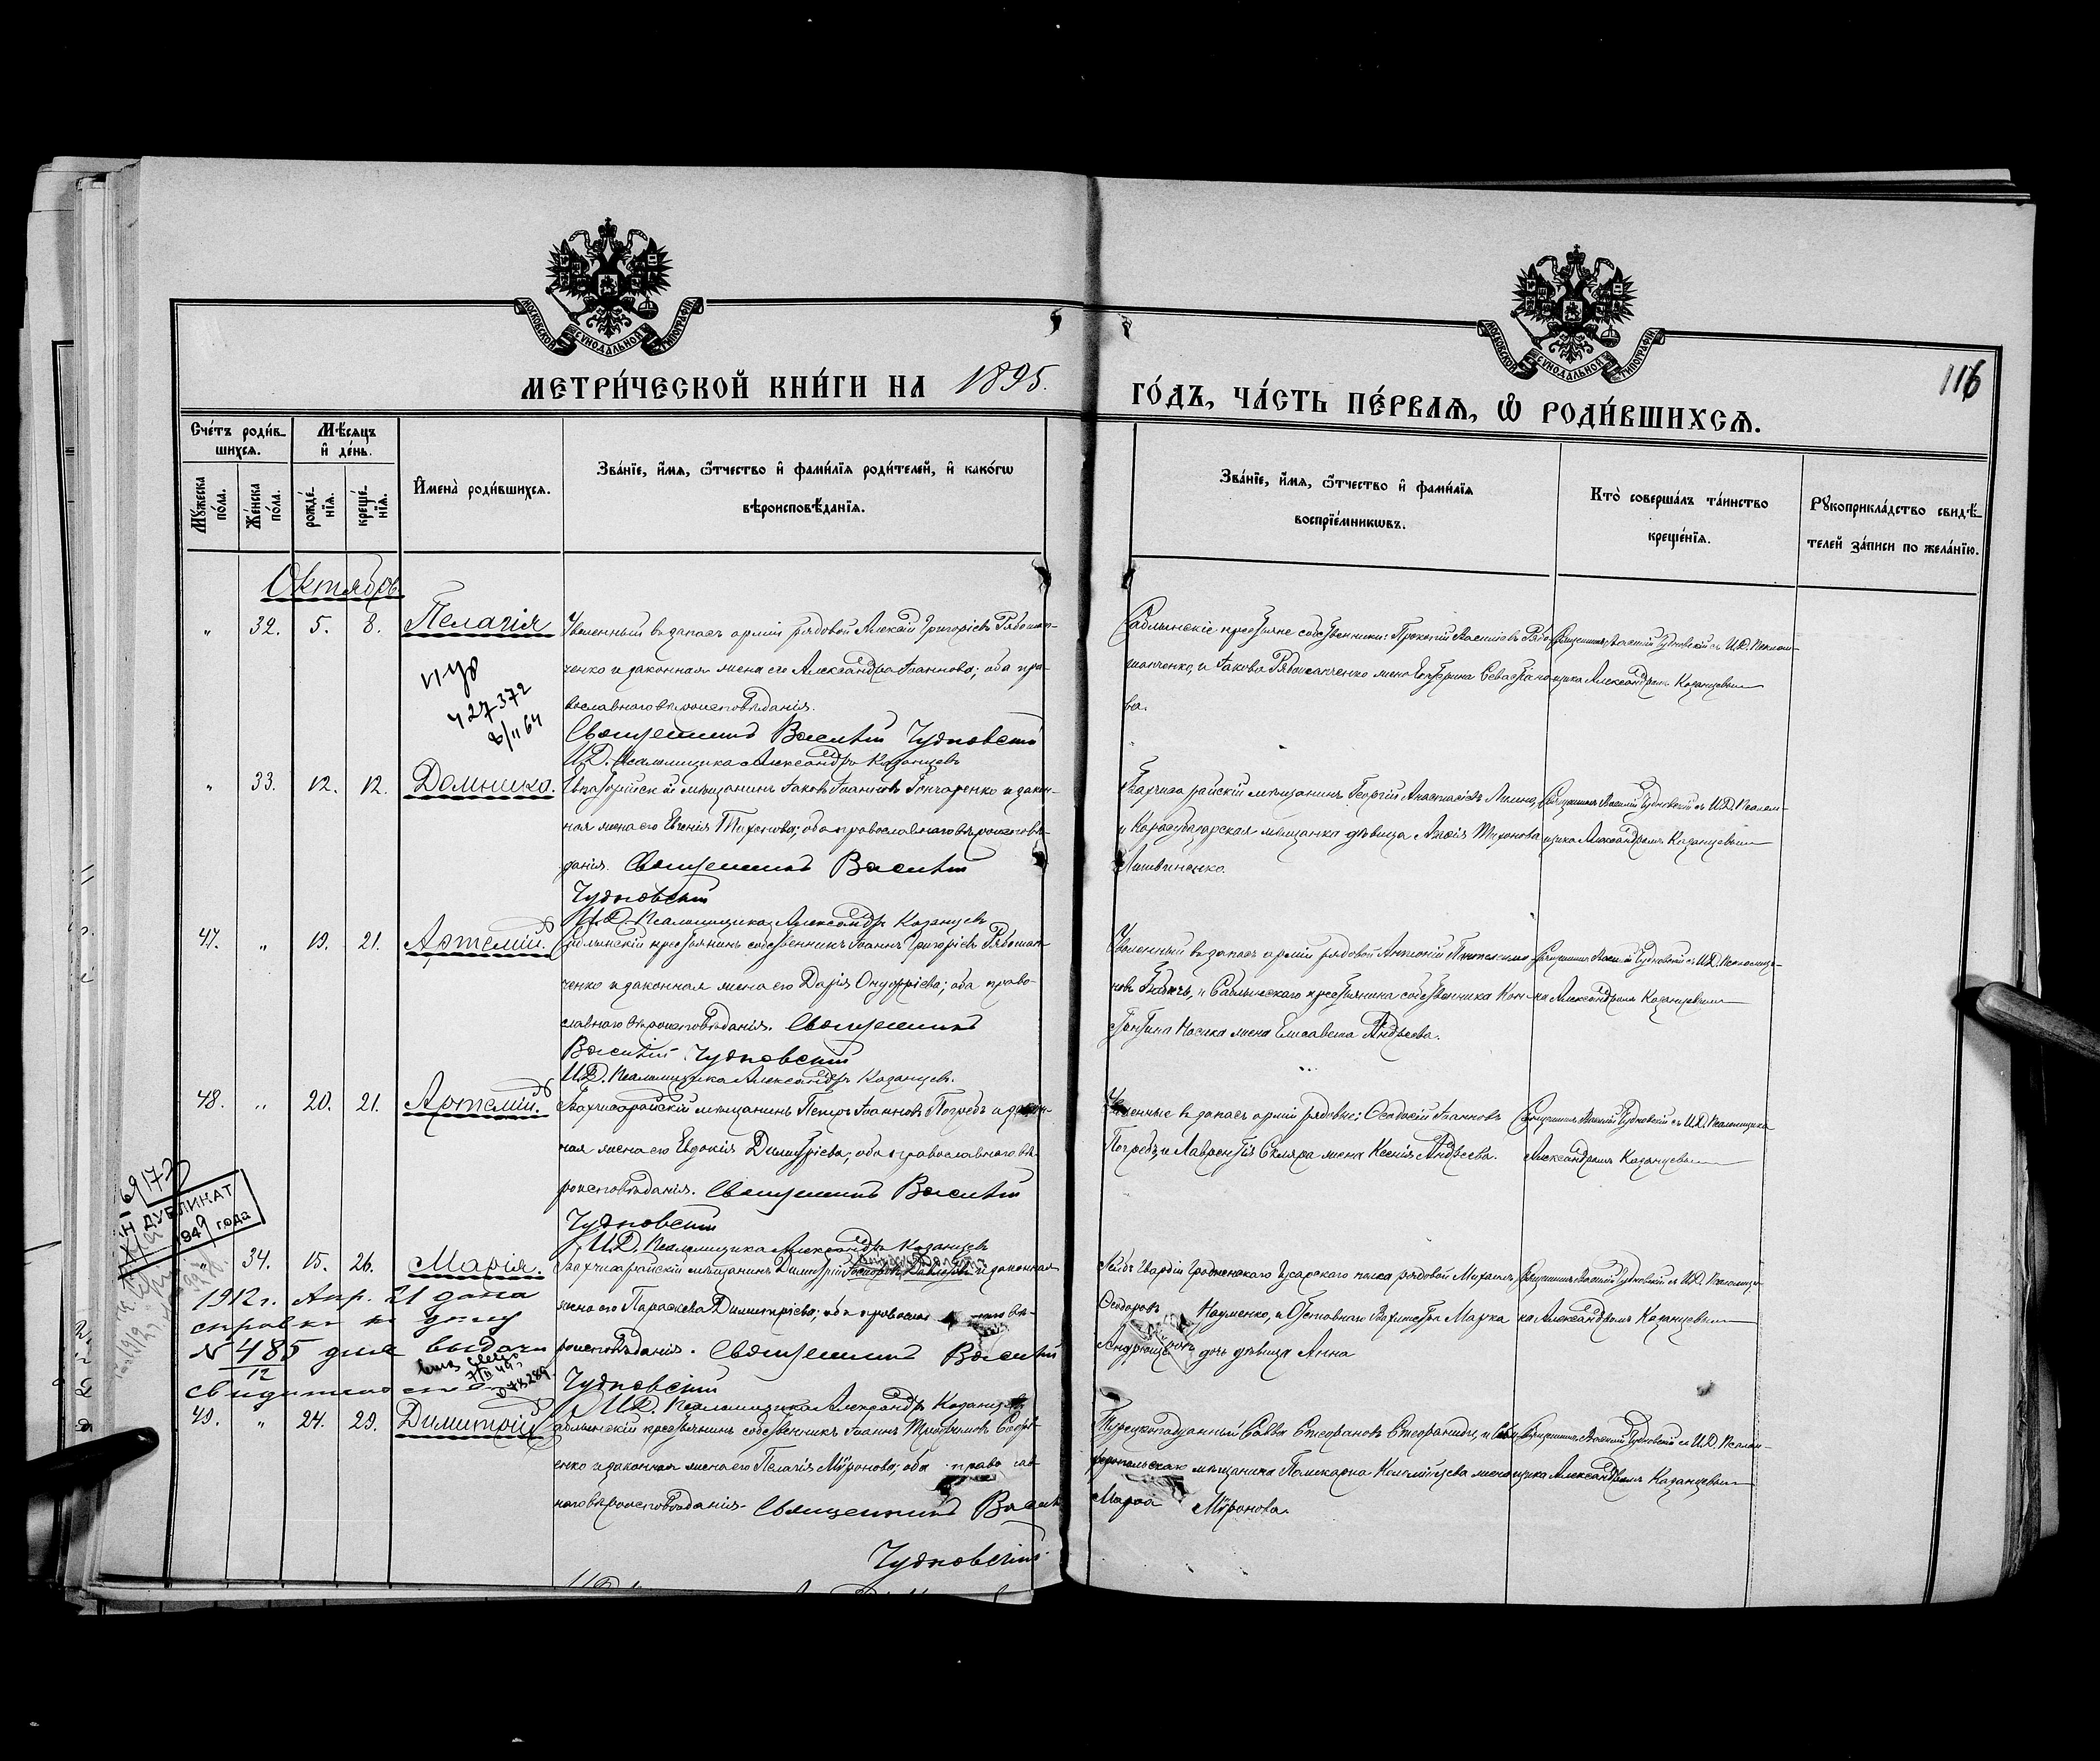 МОСКОВСКОЙ СѴНОДАЛЬНОЙ ТИПОГРАФІИ
МОСКОВСКОЙ СѴНОДАЛЬНОЙ ТИПОГРАФІИ
116
МЕТРИ́ЧЕСКОЙ КНИ́ГИ НА 1895.
ГО́ДЪ, ЧА́СТЬ ПЕ́РВАѦ, Ѡ РОДИ́ВШИХСѦ.
Сче́тъ роди́в-
шихсѧ.
Мѣ́сѧцъ
и҆ де́нь.
Мꙋ́жеска
по́ла.
Же́нска
по́ла.
рожде́-
нїѧ.
креще́-
нїѧ.
И҆мена̀ роди́вшихсѧ.
Зва́нїе, и҆́мѧ, ѻ҆́тчество и҆ фами́лїѧ роди́телей, и҆ како́гѡ
вѣроисповѣ́данїѧ.
Зва́нїе, и҆́мѧ, ѻ҆́тчество и҆ фами́лїѧ
воспрїе́мникѡвъ.
Кто̀ соверша́лъ та́инство
креще́нїѧ.
Рꙋкоприкла́дство свидѣ́-
телей за́писи по жела́нїю.
Октябрь
" 32. 5. 8. Пелагія
Уволенный въ запасъ арміи рядовой Алексѣй Григоріевъ Рябошап-
ченко и законная жена его Александра Іоаннова; оба пра-
вославнаго вѣроисповѣданія.
Священникъ Василій Чудновскій
И.Д. Псаломщика Александръ Казанцевъ
Саблынскіе крестьяне собственники: Прокопій Василіевъ Рябо-
шапченко, и Іакова Рябошапченко жена Екатерина Севастіано-
ва.
Священникъ Василій Чудновскій съ И.Д. Псалом-
щика Александромъ Казанцевымъ
427372
" 33. 12. 12. Домника.
Евпаторійскій мѣщанинъ Іаковъ Іоанновъ Гончаренко и закон-
ная жена его Евгенія Тихонова; оба православнаго вѣроисповѣ-
данія. Священникъ Василій
Чудновскій
И.Д. Псаломщика Александръ Казанцевъ
Бахчисарайскій мѣщанинъ Георгій Анастасіевъ
и Карасубазарская мѣщанка дѣвица Тихонова
Литвиненко.
Священникъ Василій Чудновскій съ И.Д. Псалом-
щика Александромъ Казанцевымъ
47. " 19. 21. Артемій.
Саблынскій крестьянинъ собственникъ Іоаннъ Григоріевъ Рябошап-
ченко и законная жена его Дарія Онуфріева; оба право-
славнаго вѣроисповѣданія. Священникъ
Василій Чудновскій
И.Д. Псаломщика Александръ Казанцевъ.
Уволенный въ запасъ арміи рядовой Антоній Пантелеимо-
новъ и Саблынскаго крестьянина собственника Кон-
стантина Носика жена Елисавета Андреева.
Священникъ Василій Чудновскій съ И.Д. Псаломщи-
ка Александромъ Казанцевымъ
48. " 20. 21. Артемій.
Бахчисарайскій мѣщанинъ Петръ Іоанновъ Погребъ и закон-
ная жена его Евдокія Димитріева; оба православнаго вѣ-
роисповѣданія. Священникъ Василій
Чудновскій
И.Д. Псаломщика Александръ Казанцевъ
Уволенные въ запасъ арміи рядовые: Ѳеодосій Іоанновъ
Погребъ и Лаврентія Скляра жена Ксенія Андреева.
Священникъ Василій Чудновскій съ И.Д. Псаломщика
Александромъ Казанцевымъ
ДУБЛИКАТ
1949 года
" 34. 15. 26. Марія.
Бахчисарайскій мѣщанинъ Димитрій и законная
жена его Параскева Димитріева; оба православнаго вѣ-
роисповѣданія. Священникъ Василій
Чудновскій
И.Д. Псаломщика Александръ Казанцевъ
Лейбъ Гвардіи Гродненскаго Гусарскаго полка рядовой Михаилъ
Ѳеодоровъ Науменко, и Отставного Вахмистра Марка
дочь дѣвица Анна
Священникъ Василій Чудновскій съ И.Д. Псаломщи-
ка Александромъ Казанцевымъ
1912 г. Апр. 21 дана
справка
№ 485 для выдачи
12
свидѣтельства
49. " 24. 29. Димитрій
Саблынскій крестьянинъ собственникъ Іоаннъ
енко и законная жена его Пелагія Мѵронова; оба право слав
наго вѣроисповѣданія. Священникъ Васил
Чудновскій
Турецкоподданный Савва Стефановъ Стефаниди, и Сим-
феропольскаго мѣщанина Поликарпа жена
Марѳа Мѵронова.
Священникъ Василій Чудновскій съ И.Д. Псалом-
щика Александромъ Казанцевымъ